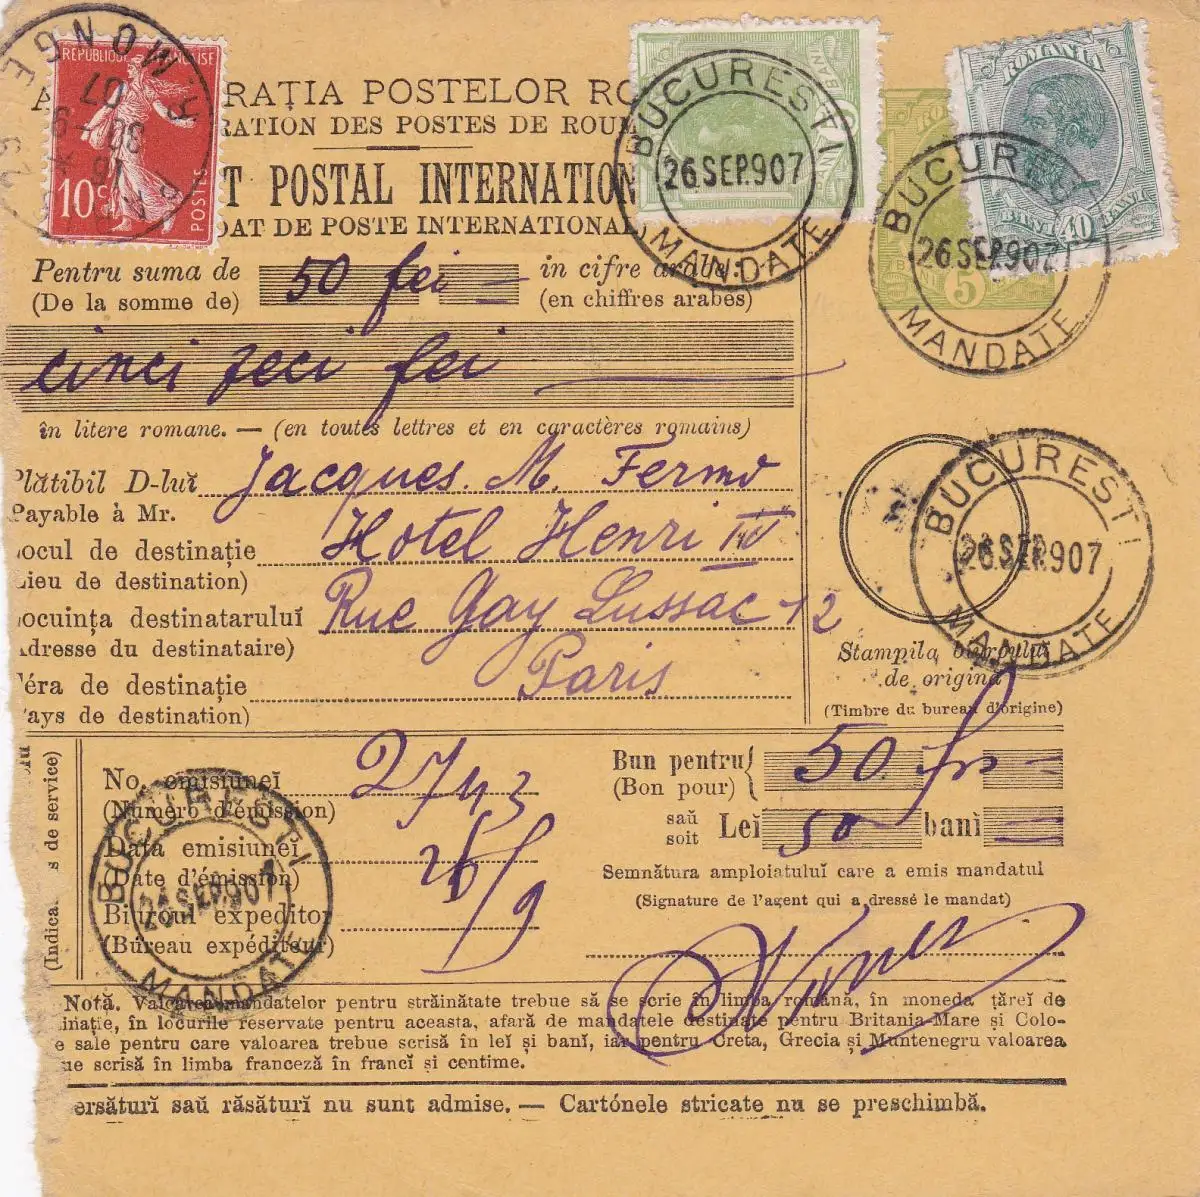 RÉPUBLIQUE FRANÇAISE
10 c
POSTES
R. MONGE
30 -9
07
BUCURESTI
26 SEP. 907
MANDATE
ROMANIA
BANI 40 BANI
BUCURESTI
26 SEP. 907
MANDATE
5
RAȚIA POSTELOR RO
RATION DES POSTES DE ROUM
T POSTAL INTERNATION
DAT DE POSTE INTERNATIONAL)
Pentru suma de 50 lei = in cifre arabe:
(De la somme de) (en chiffres arabes)
cinci zeci lei
în litere romane. — (en toutes lettres et en caractères romains)
Plătibil D-luĭ Jacques. M. Fermo
Payable à Mr.
ocul de destinație Hotel Henri IV
Lieu de destination)
ocuința destinataruluĭ Rue Gay Lussac 12
Adresse du destinataire)
Țéra de destinație Paris
Pays de destination)
BUCURESTI
26 SEP. 907
MANDATE
Stampila biŭroulu
de origina
(Timbre du bureau d'origine)
(Indica s de service)
No. emisiuneĭ 2743
(Numéro d'émission)
Data emisiuneĭ 26/9
(Date d'émission)
Biŭroul expeditor
(Bureau expéditeur)
BUCURESTI
26 SEP. 907
MANDATE
Bun pentru 50 fr =
(Bon pour)
saŭ
soit Leĭ 50 banĭ =
Semnătura amploiatuluĭ care a emis mandatul
(Signature de l'agent qui a dressé le mandat)
Notă. Valoarea mandatelor pentru străinătate trebue să se scrie în limba română, în moneda țăreĭ de
inație, în locurile reservate pentru aceasta, afară de mandatele destinate pentru Britania-Mare și Colo-
e sale pentru care valoarea trebue scrisă în leĭ și banĭ, iar pentru Creta, Grecia și Muntenegru valoarea
ue scrisă în limba franceză în francĭ și centime.
ersăturĭ saŭ răsăturĭ nu sunt admise. — Cartónele stricate nu se preschimbă.